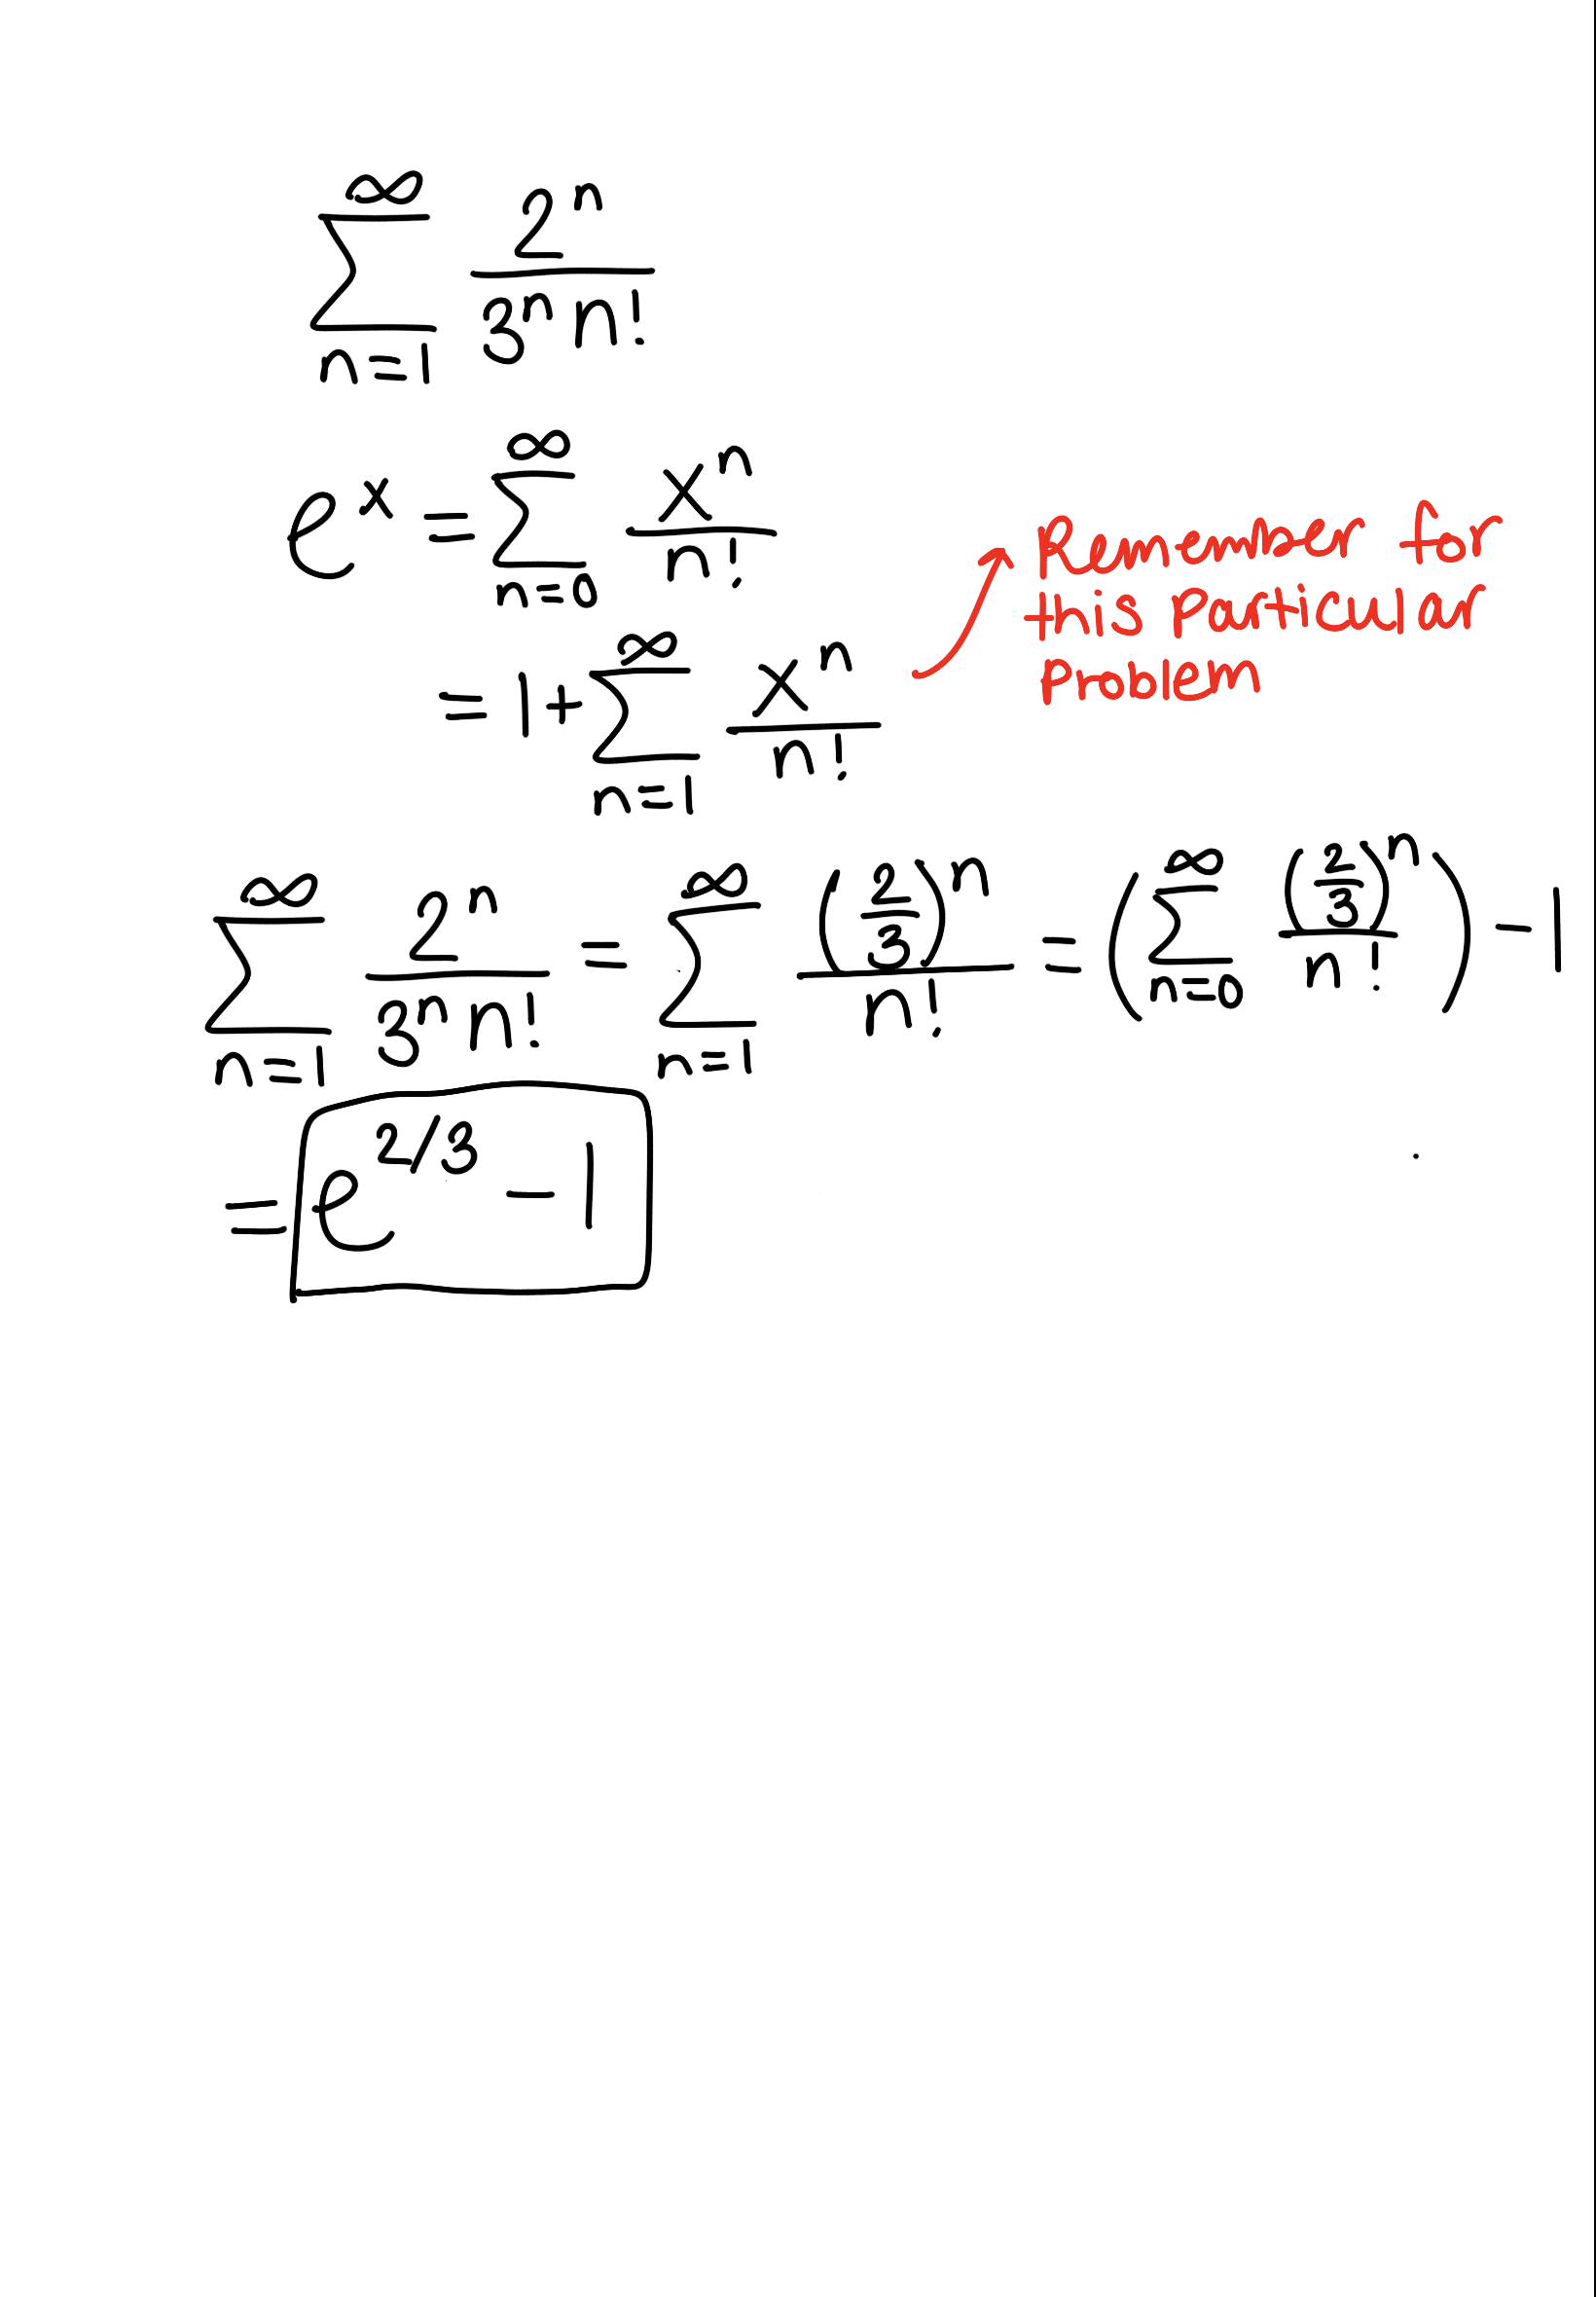 $\sum_{n=1}^{\infty} \frac{2^n}{3^n n!}$
$e^x = \sum_{n=0}^{\infty} \frac{x^n}{n!}$
$= 1 + \sum_{n=1}^{\infty} \frac{x^n}{n!}$
Remember for
this particular
problem
$\sum_{n=1}^{\infty} \frac{2^n}{3^n n!} = \sum_{n=1}^{\infty} \frac{\left(\frac{2}{3}\right)^n}{n!} = \left( \sum_{n=0}^{\infty} \frac{\left(\frac{2}{3}\right)^n}{n!} \right) - 1$
$= e^{2/3} - 1$